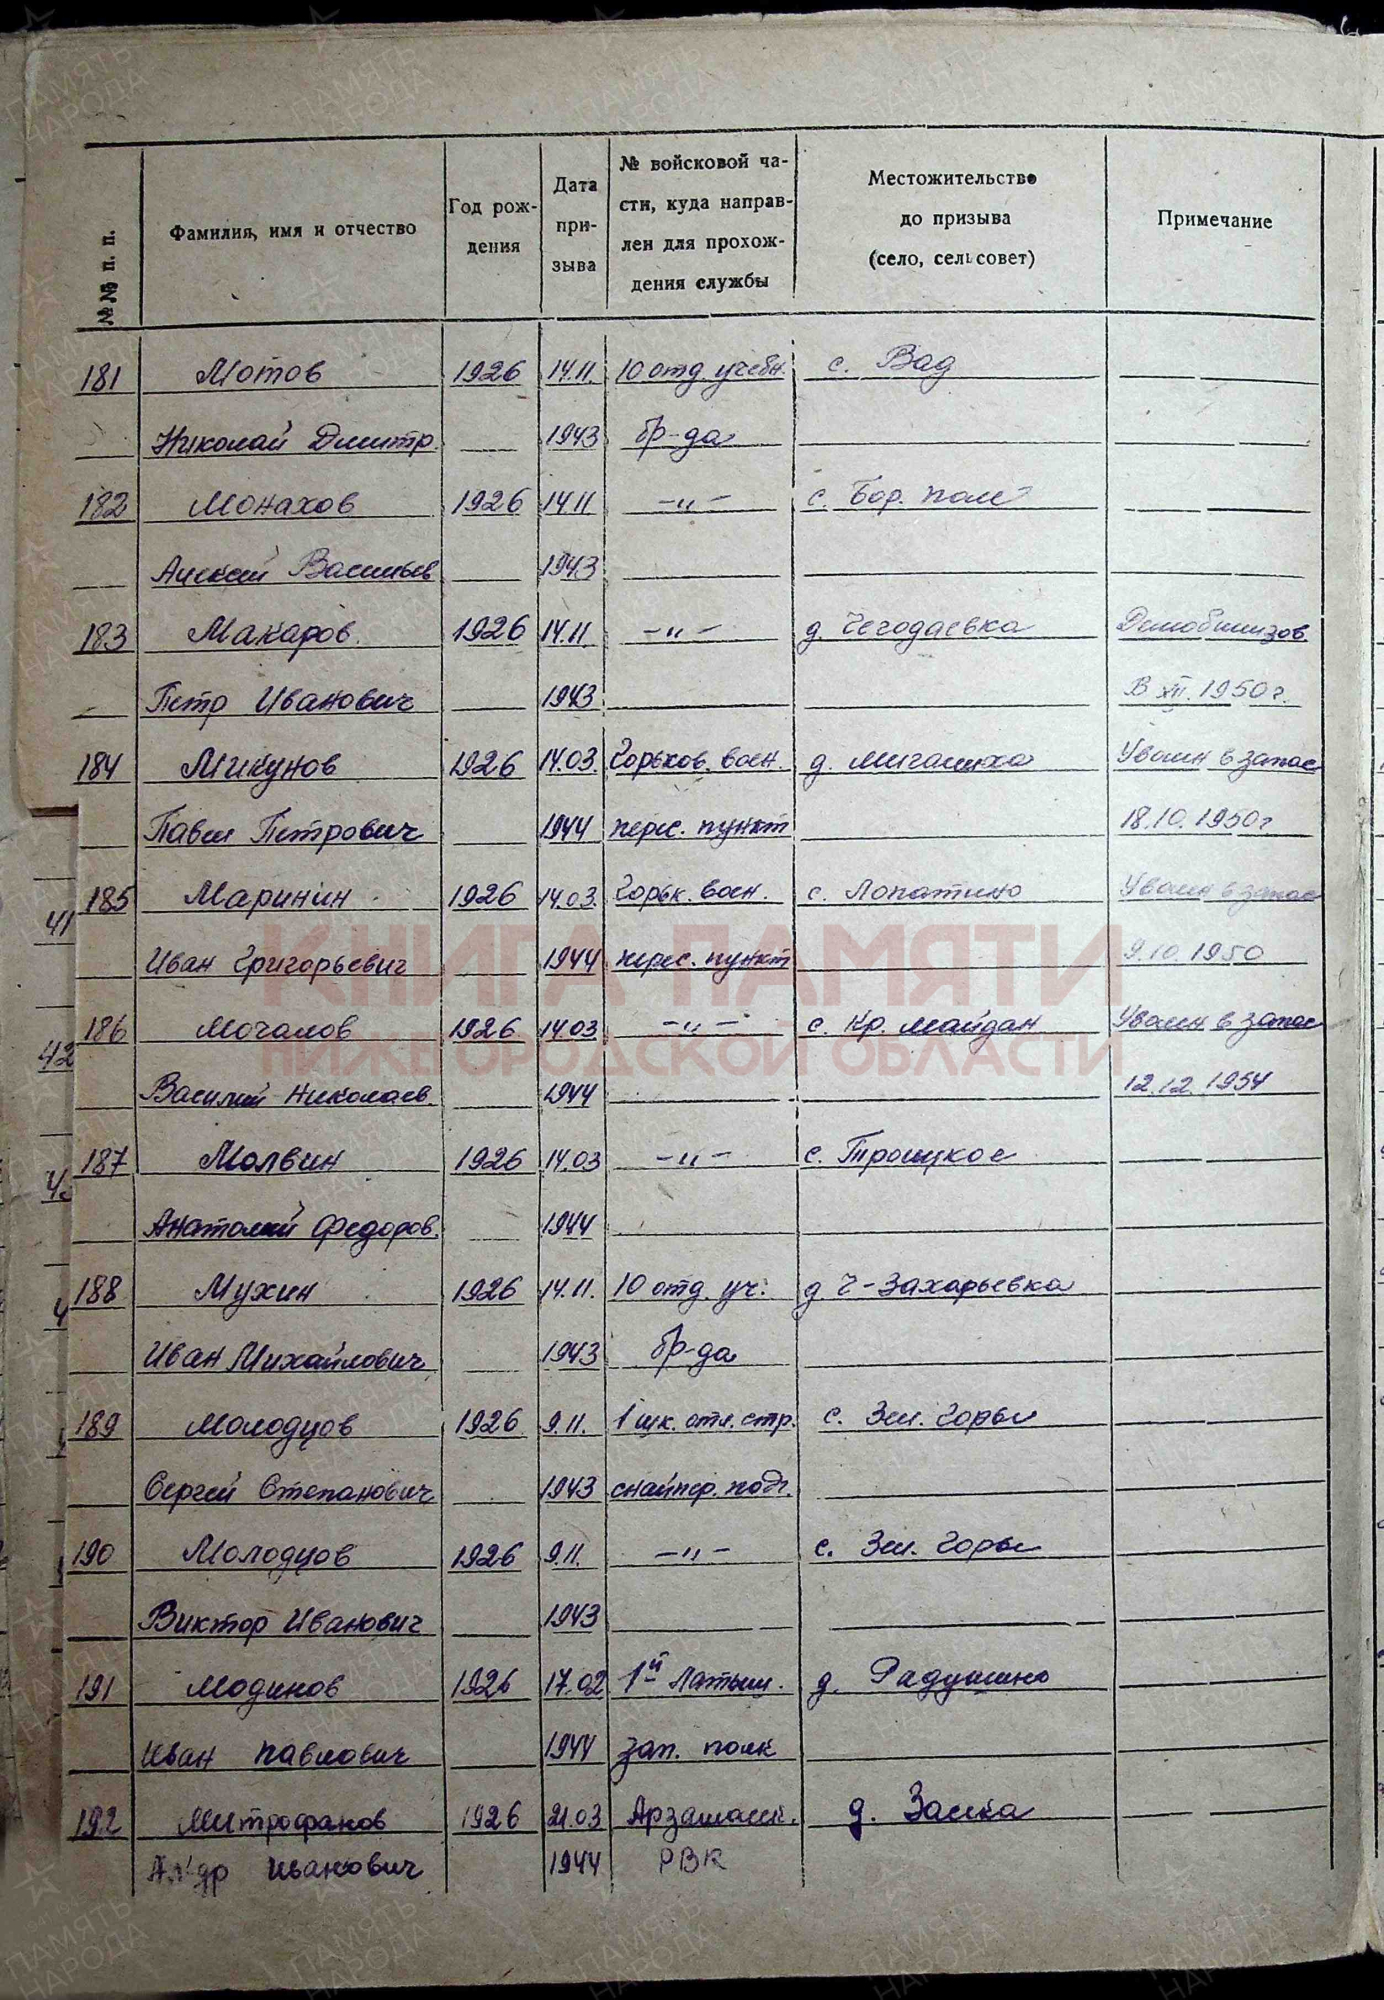 №№ п. п. Фамилия, имя и отчество Год рож- дения Дата при- зыва № войсковой ча- сти, куда направ- лен для прохож- дения службы Местожительство до призыва (село, сельсовет) Примечание
181 Мотов 1926 14.11. 10 отд. учебн. с. Вад
Николай Дмитр. 1943 бр-да
182 Монахов 1926 14.11 -"- с. Бор. поле
Алексей Васильев 1943
183 Макаров 1926 14.11. -"- д. Чегодаевка Демобилизов.
Петр Иванович 1943 В XII. 1950г.
184 Микунов 1926 14.03. Горьков. воен. д. Мигалиха Уволен в запас
Павел Петрович 1944 перес. пункт 18.10. 1950г
185 Маринин 1926 14.03. Горьк. воен. с. Лопатино Уволен в запас
41
Иван Григорьевич 1944 перес. пункт 9.10. 1950
КНИГА ПАМЯТИ
НИЖЕГОРОДСКОЙ ОБЛАСТИ
186 Мочалов 1926 14.03 -"- с. Кр. Майдан Уволен в запас
42
Василий Николаев. 1944 12.12. 1954
187 Молвин 1926 14.03 -"- с. Троицкое
Анатолий Федоров. 1944
188 Мухин 1926 14.11. 10 отд. уч. д Ч-Захарьевка
Иван Михайлович 1943 бр-да
189 Молодцов 1926 9.11. 1 шк. отл. стр. с. Зел. Горы
Сергей Степанович 1943 снайпер. подг.
190 Молодцов 1926 9.11. -"- с. Зел. Горы
Виктор Иванович 1943
191 Модинов 1926 17.02 1й Латыш. д. Радушино
Иван Павлович 1944 зап. полк
192 Митрофанов 1926 21.03 Арзамасск. д. Заика
Ал-др Иванович 1944 РВК
ПАМЯТЬ НАРОДА